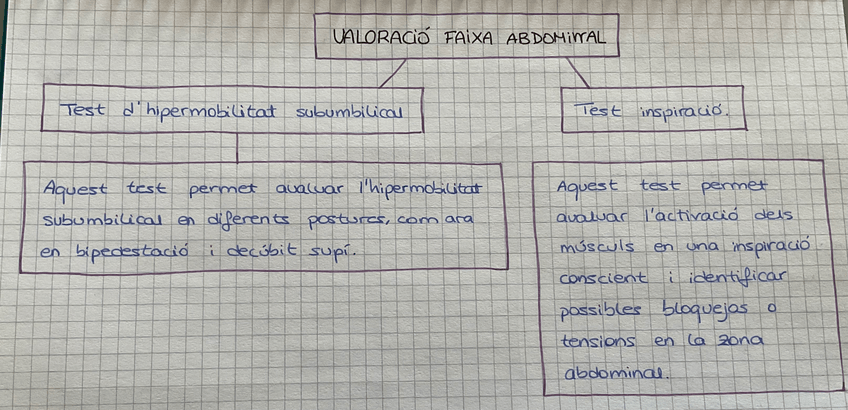 VALORACIÓ FAIXA ABDOMINAL
Test d'hipermobilitat subumbilical
Test inspiració.
Aquest test permet avaluar l'hipermobilitat
subumbilical en diferents postures, com ara
en bipedestació i decúbit supí.
Aquest test permet
avaluar l'activació dels
músculs en una inspiració
conscient i identificar
possibles bloquejos o
tensions en la zona
abdominal.